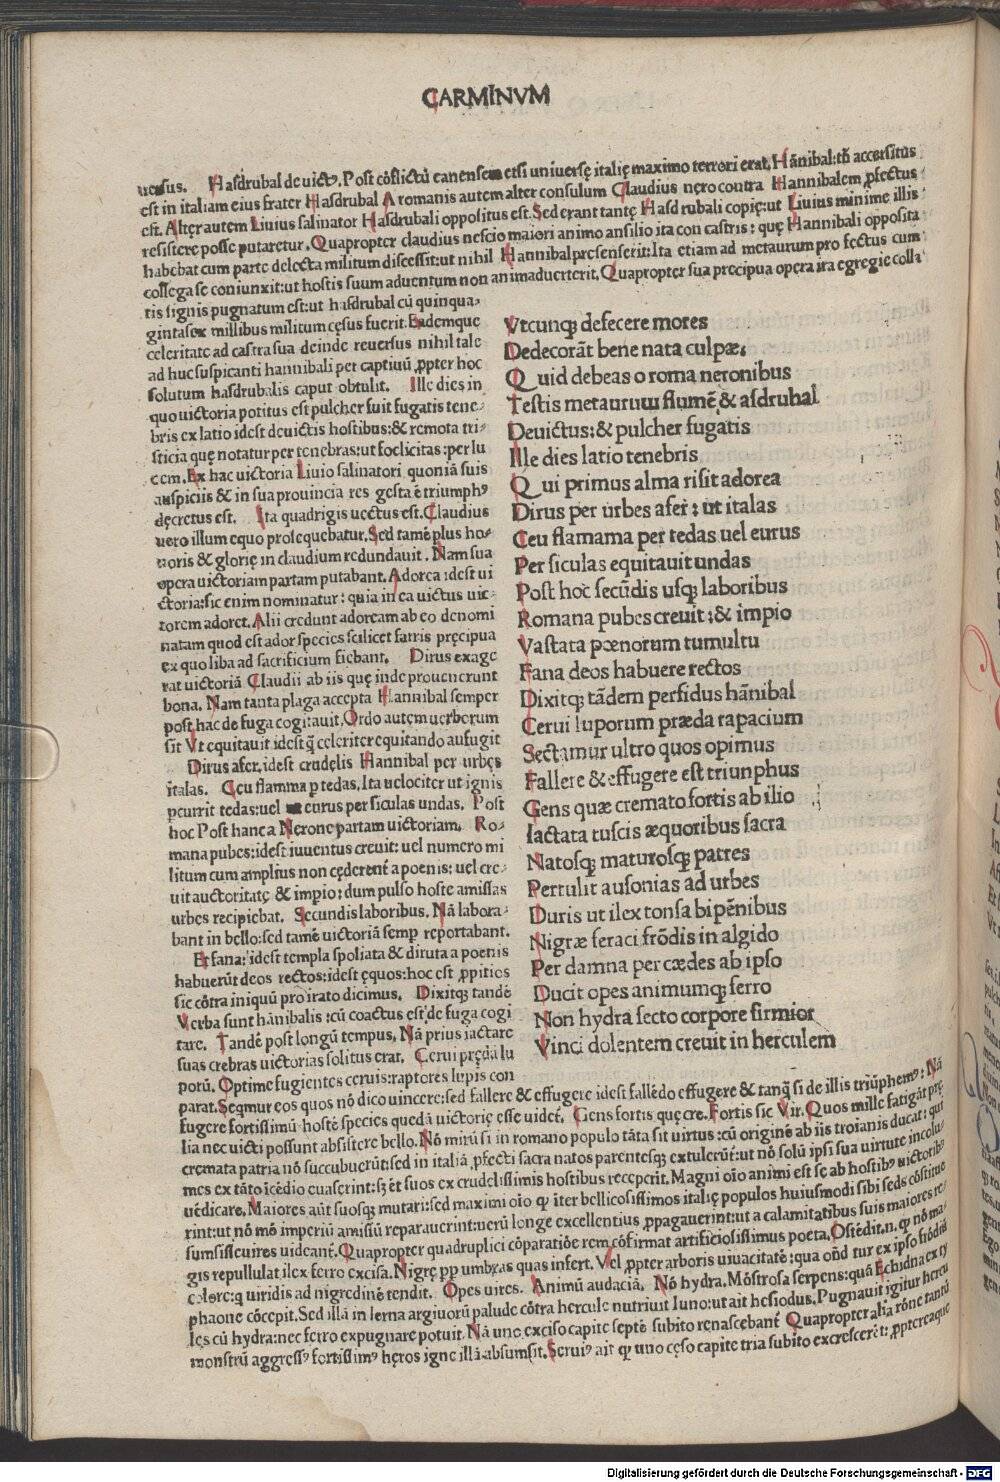 CARMINVM
uersus. Hasdrubal deuictꝰ. Post cōflictū canensem etsi uniuersę italię maximo terrori erat. Hānibal: tn̄ accersitus
est in italiam eius frater Hasdrubal A romanis autem alter consulum Claudius nero contra Hannibalem ꝓfectus
est. Alter autem Liuius salinator Hasdrubali oppositus est. Sed erant tantę Hasdrubali copię: ut Liuius minime illis
resistere posse putaretur. Quapropter claudius nescio maiori animo an silio ita con castris: quę Hannibali opposita
habebat cum parte delecta militum discessit: ut nihil Hannibal presenserit: Ita etiam ad metaurum pro fectus cum
collega se coniunxit: ut hostis suum aduentum non animaduerterit. Quapropter sua precipua opera ita egregie colla
tis signis pugnatum est: ut hasdrubal cū quinqua-
gintasex millibus militum cęsus fuerit. Eademque
celeritate ad castra sua deinde reuersus nihil tale
ad huc suspicanti hannibali per captiuū ꝓpter hoc
solutum hasdrubalis caput obtulit. Ille dies in
quo uictoria potitus est pulcher fuit fugatis tene-
bris ex latio idest deuictis hostibus: & remota tri-
sticia quę notatur per tenebras: ut foelicitas: per lu
cem. Ex hac uictoria Liuio salinatori quoniā suis
auspiciis & in sua prouincia res gesta ē triumphꝰ
decretus est. Ita quadrigis uectus est. Claudius
uero illum equo prosequebatur. Sed tamē plus ho-
noris & glorię in claudium redundauit. Nam sua
opera uictoriam partam putabant. Adorea idest ui
ctoria: sic enim nominatur: quia in ea uictus uic-
torem adoret. Alii credunt adoream ab eo denomi
natam quod est ador species scilicet farris pręcipua
ex quo liba ad sacrificium fiebant. Dirus exage
rat uictoriā Claudii ab iis quę inde prouenerunt
bona. Nam tanta plaga accepta Hannibal semper
post hac de fuga cogitauit. Ordo autem uerborum
sit Vt equitauit idest q̄ celeriter equitando aufugit
Dirus afer. idest crudelis Hannibal per urbes
italas. Ceu flamma ꝑ tedas. Ita uelociter ut ignis
ꝑcurrit tedas: uel eurus per siculas undas. Post
hoc Post hanc a Nerone partam uictoriam. Ro-
mana pubes: idest iuuentus creuit: uel numero mi
litum cum amplius non cęderent a poenis: uel cre-
uit auctoritate & impio: dum pulso hoste amissas
urbes recipiebat. Secundis laboribus. Nā labora-
bant in bello: sed tamē uictoriā semꝑ reportabant.
Et fana: idest templa spoliata & diruta a poenis
habuerūt deos rectos: idest ęquos: hoc est ꝓpitios
sic cōtra iniquū pro irato dicimus. Dixitqꝫ tandē
Verba sunt hānibalis: cū coactus est de fuga cogi
tare. Tandē post longū tempus. Nā prius iactare
suas crebras uictorias solitus erat. Cerui pręda lu
porū. Optime fugientes ceruis: raptores lupis con
Vtcunqꝫ defecere mores
Dedecorāt bene nata culpæ.
Quid debeas o roma neronibus
Testis metaurum flumē & asdrubal
Deuictus: & pulcher fugatis
Ille dies latio tenebris
Qui primus alma risit adorea
Dirus per urbes afer: ut italas
Ceu flamama per tedas uel eurus
Per siculas equitauit undas
Post hoc secūdis usqꝫ laboribus
Romana pubes creuit: & impio
Vastata pœnorum tumultu
Fana deos habuere rectos
Dixitqꝫ tādem perfidus hānibal
Cerui luporum præda rapacium
Sectamur ultro quos opimus
Fallere & effugere est triunphus
Gens quæ cremato fortis ab ilio
Iactata tuscis æquoribus sacra
Natosqꝫ maturosqꝫ patres
Pertulit ausonias ad urbes
Duris ut ilex tonsa bipēnibus
Nigræ feraci frōdis in algido
Per damna per cædes ab ipso
Ducit opes animumqꝫ ferro
Non hydra secto corpore firmior
Vinci dolentem creuit in herculem
parat. Seqmur eos quos nō dico uincere: sed fallere & effugere idest fallēdo effugere & tanq̄ si de illis triūphemꝰ: Nā
fugere fortissimū hostē species quedā uictorię esse uidet. Gens fortis quę cre. Fortis sic Vir. Quos mille fatigāt pre
lia nec uicti possunt absistere bello. Nō mirū si in romano populo tāta sit uirtus: cū originē ab iis troianis ducat: qui
cremata patria nō succubuerūt: sed in italiā ꝓfecti sacra natos parentesqꝫ extulerūt: ut nō solū ipsi sua uirtute incolu-
mes ex tāto īcēdio euaserint: sꝫ et suos ex crudelissimis hostibus receperit. Magni oīo animi est se ab hostibꝰ uictoribꝰ
uēdicare. Maiores aūt suosqꝫ mutari: sed maximi oīo ꝙ iter bellicosissimos italię populos huiusmodi sibi seds cōstitue
rint: ut nō mō imperiū amissū reparauerint: uerū longe excellentius ꝓpagauerint: ut a calamitatibus suis maiores re-
sumsisse uires uideant. Quapropter quadruplici cōparatiōe rem cōfirmat artificiosissimus poeta. Ostēdit .n. ꝙ nō ma-
gis repullulat ilex ferro excisa. Nigrę ꝓp umbras quas infert. Vel ꝓpter arboris uiuacitatē: qua oīd tur ex ipso frōdis
colore: q̄ uiridis ad nigredinē tendit. Opes uires. Animū audaciā. Nō hydra. Mōstrosa serpens: quā Echidna ex ty
phaone cōcepit. Sed illā in lerna argiuorū palude cōtra hercule nutriuit Iuno: ut ait hesiodus. Pugnauit igitur hercu
les cū hydra: nec ferro expugnare potuit. Nā uno exciso capite septē subito renascebant Quapropter alia rōne tantū
monstrū aggressꝰ fortissimꝰ heros igne illā absumsit. Seruiꝰ ait ꝙ uno cęso capite tria subito excresceret: ꝓptereaque
Digitalisierung gefördert durch die Deutsche Forschungsgemeinschaft - DFG